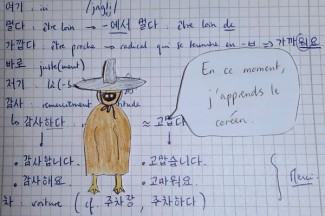 여기 : ici /jʌgi/
멀다 : être loin → -에서 멀다 : être loin de
가깝다 : être proche → radical qui se termine en -ㅂ ⇒ 가까워요
바로 : juste(ment)
저기 :
감사 : remerciement
↳ 감사하다 ≈ 고맙다
• 감사합니다. • 고맙습니다.
• 감사해요. • 고마워요.
Merci.
차 : voiture (cf. 주차장, 주차하다)
En ce moment,
j'apprends le
coréen.